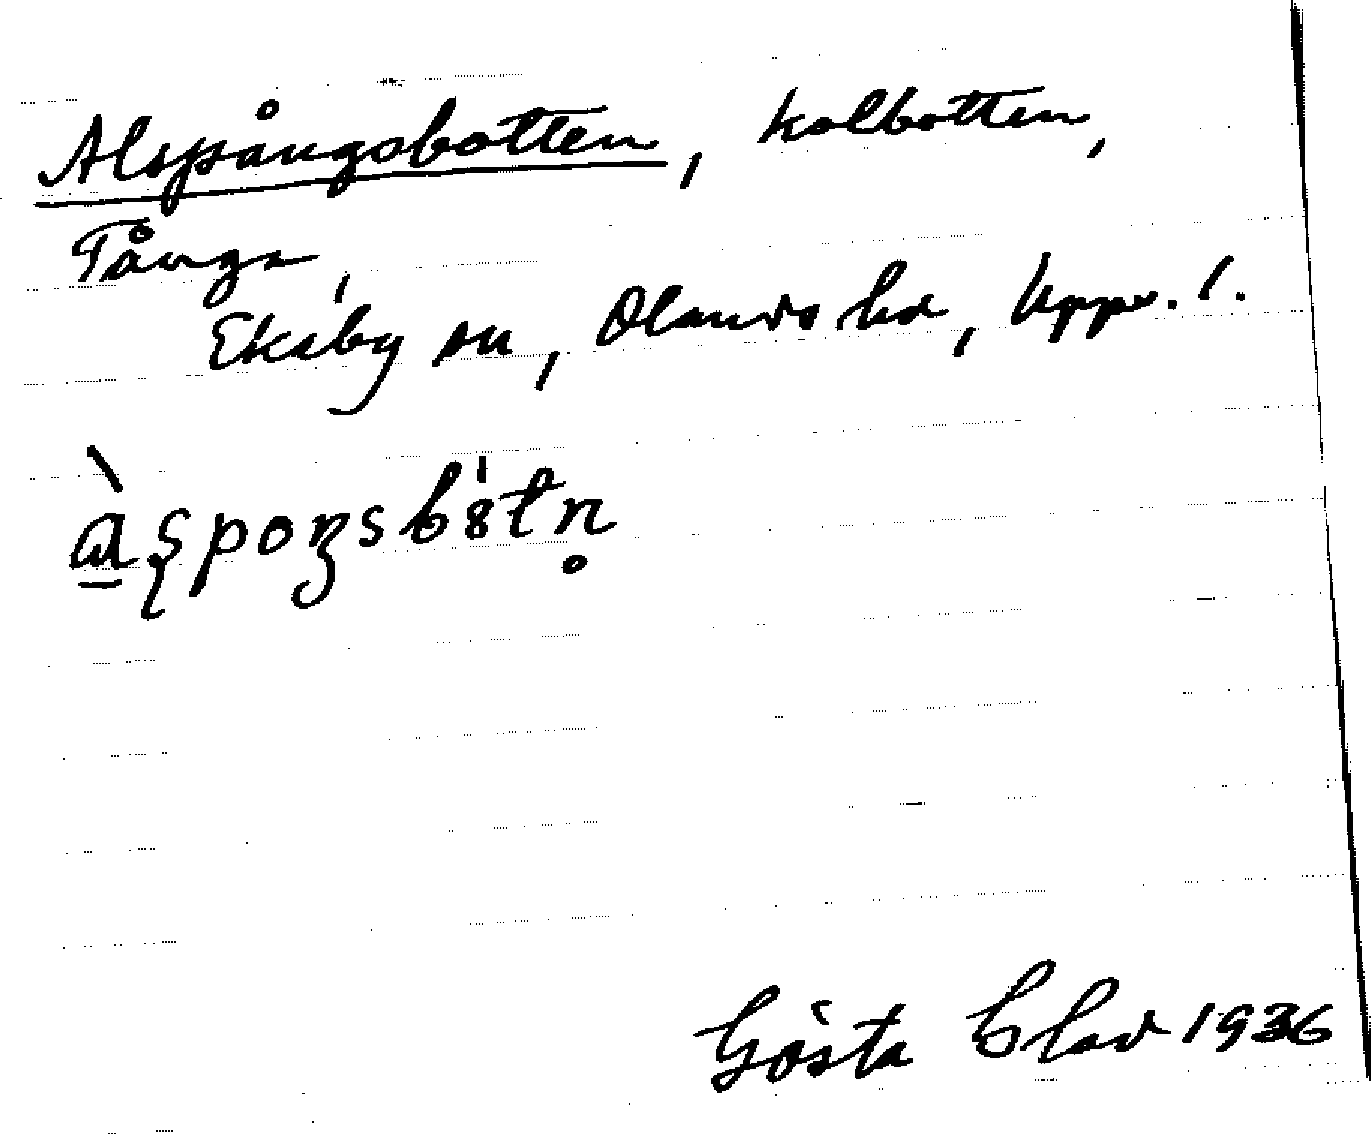 Alspångsbotten, kolbotten,
Tånga,
Ekeby sn, Olands hd, Upps. l.
Gösta Blad 1936